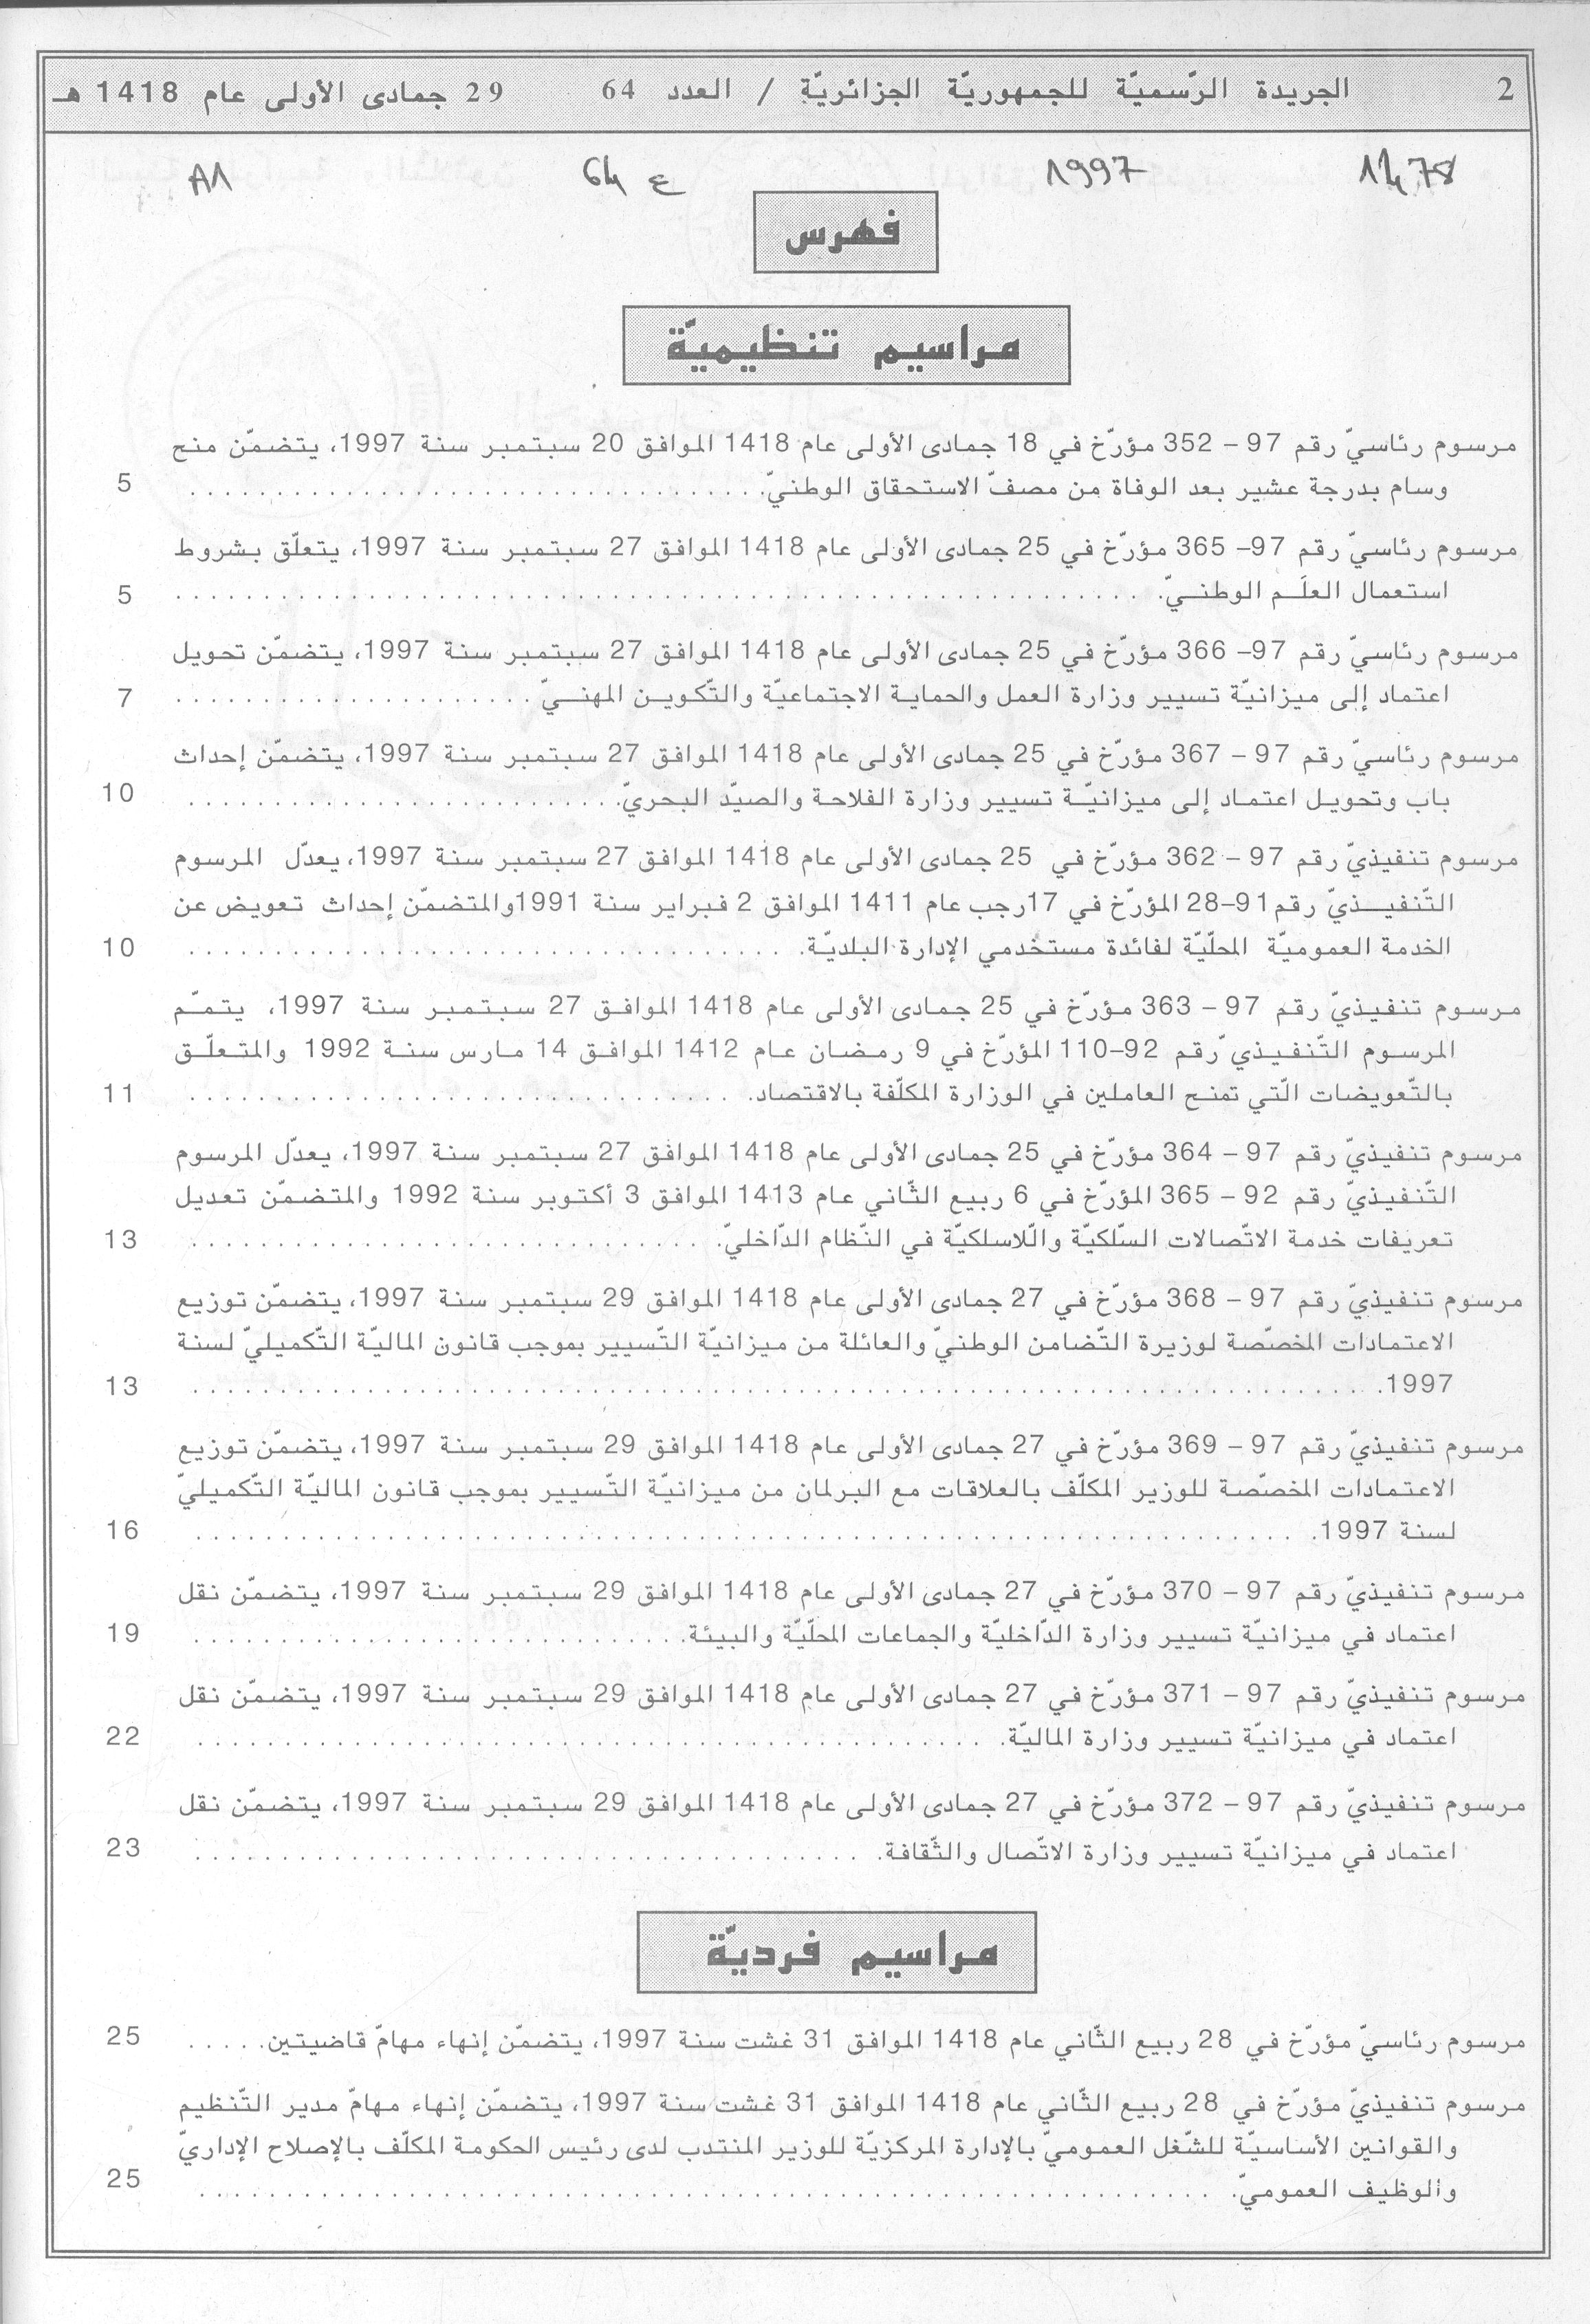 2 الجريدة الرّسميّة للجمهوريّة الجزائريّة / العدد 64 29 جمادى الأولى عام 1418 هـ
1997 64 ع A1
فهرس
مراسيم تنظيميّة
مرسوم رئاسيّ رقم 97 – 352 مؤرّخ في 18 جمادى الأولى عام 1418 الموافق 20 سبتمبر سنة 1997، يتضمّن منح
وسام بدرجة عشير بعد الوفاة من مصفّ الاستحقاق الوطنيّ. 5
مرسوم رئاسيّ رقم 97– 365 مؤرّخ في 25 جمادى الأولى عام 1418 الموافق 27 سبتمبر سنة 1997، يتعلّق بشروط
استعمال العلَم الوطنيّ. 5
مرسوم رئاسيّ رقم 97– 366 مؤرّخ في 25 جمادى الأولى عام 1418 الموافق 27 سبتمبر سنة 1997، يتضمّن تحويل
اعتماد إلى ميزانيّة تسيير وزارة العمل والحماية الاجتماعيّة والتّكوين المهنيّ 7
مرسوم رئاسيّ رقم 97 – 367 مؤرّخ في 25 جمادى الأولى عام 1418 الموافق 27 سبتمبر سنة 1997، يتضمّن إحداث
باب وتحويل اعتماد إلى ميزانيّة تسيير وزارة الفلاحة والصيّد البحريّ. 10
مرسوم تنفيذيّ رقم 97 – 362 مؤرّخ في 25 جمادى الأولى عام 1418 الموافق 27 سبتمبر سنة 1997، يعدّل المرسوم
التّنفيـذيّ رقم 91–28 المؤرّخ في 17رجب عام 1411 الموافق 2 فبراير سنة 1991والمتضمّن إحداث تعويض عن
الخدمة العموميّة المحلّيّة لفائدة مستخدمي الإدارة البلديّة. 10
مرسوم تنفيذيّ رقم 97 – 363 مؤرّخ في 25 جمادى الأولى عام 1418 الموافق 27 سبتمبر سنة 1997، يتمّم
المرسوم التّنفيذيّ رقم 92–110 المؤرّخ في 9 رمضان عام 1412 الموافق 14 مارس سنة 1992 والمتعلّق
بالتّعويضات الّتي تمنح العاملين في الوزارة المكلّفة بالاقتصاد. 11
مرسوم تنفيذيّ رقم 97 – 364 مؤرّخ في 25 جمادى الأولى عام 1418 الموافق 27 سبتمبر سنة 1997، يعدّل المرسوم
التّنفيذيّ رقم 92 – 365 المؤرّخ في 6 ربيع الثّاني عام 1413 الموافق 3 أكتوبر سنة 1992 والمتضمّن تعديل
تعريفات خدمة الاتّصالات السّلكيّة واللّاسلكيّة في النّظام الدّاخليّ. 13
مرسوم تنفيذيّ رقم 97 – 368 مؤرّخ في 27 جمادى الأولى عام 1418 الموافق 29 سبتمبر سنة 1997، يتضمّن توزيع
الاعتمادات المخصّصة لوزيرة التّضامن الوطنيّ والعائلة من ميزانيّة التّسيير بموجب قانون الماليّة التّكميليّ لسنة
1997. 13
مرسوم تنفيذيّ رقم 97 – 369 مؤرّخ في 27 جمادى الأولى عام 1418 الموافق 29 سبتمبر سنة 1997، يتضمّن توزيع
الاعتمادات المخصّصة للوزير المكلّف بالعلاقات مع البرلمان من ميزانيّة التّسيير بموجب قانون الماليّة التّكميليّ
لسنة 1997. 16
مرسوم تنفيذيّ رقم 97 – 370 مؤرّخ في 27 جمادى الأولى عام 1418 الموافق 29 سبتمبر سنة 1997، يتضمّن نقل
اعتماد في ميزانيّة تسيير وزارة الدّاخليّة والجماعات المحلّيّة والبيئة. 19
مرسوم تنفيذيّ رقم 97 – 371 مؤرّخ في 27 جمادى الأولى عام 1418 الموافق 29 سبتمبر سنة 1997، يتضمّن نقل
اعتماد في ميزانيّة تسيير وزارة الماليّة. 22
مرسوم تنفيذيّ رقم 97 – 372 مؤرّخ في 27 جمادى الأولى عام 1418 الموافق 29 سبتمبر سنة 1997، يتضمّن نقل
اعتماد في ميزانيّة تسيير وزارة الاتّصال والثّقافة. 23
مراسيم فرديّة
مرسوم رئاسيّ مؤرّخ في 28 ربيع الثّاني عام 1418 الموافق 31 غشت سنة 1997، يتضمّن إنهاء مهامّ قاضيتين. 25
مرسوم تنفيذيّ مؤرّخ في 28 ربيع الثّاني عام 1418 الموافق 31 غشت سنة 1997، يتضمّن إنهاء مهامّ مدير التّنظيم
والقوانين الأساسيّة للشّغل العموميّ بالإدارة المركزيّة للوزير المنتدب لدى رئيس الحكومة المكلّف بالإصلاح الإداريّ
والوظيف العموميّ. 25